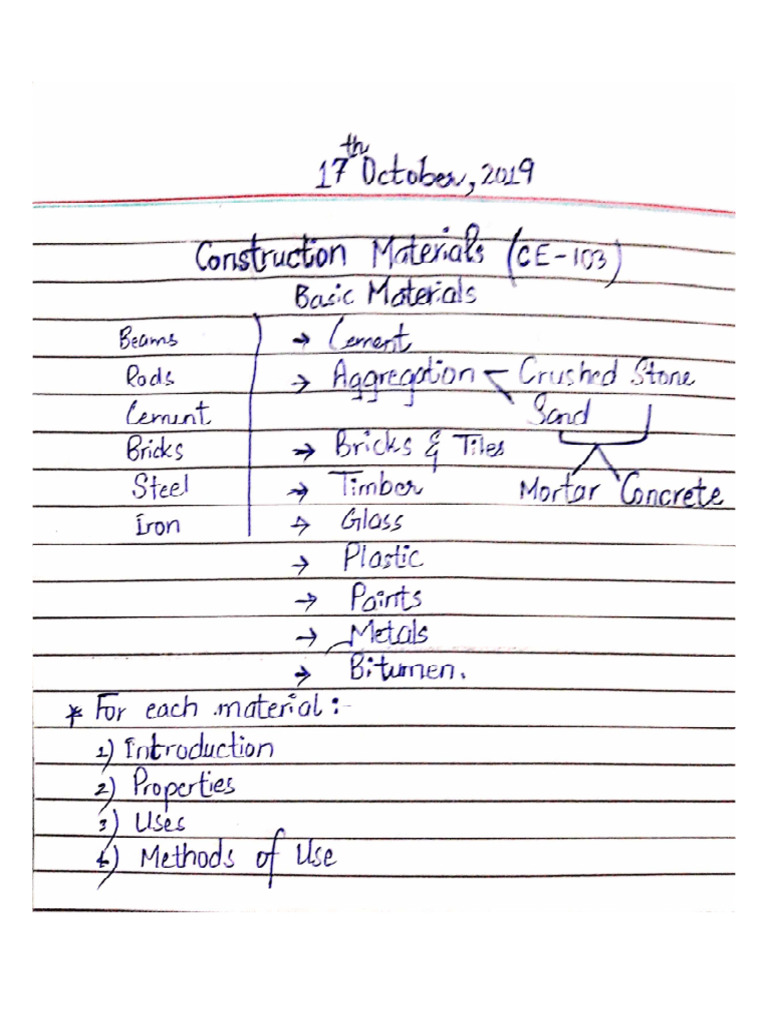 17th October, 2019
Construction Materials (CE-103)
Basic Materials
Beams → Cement
Rods → Aggregation - Crushed Stone
Cement Sand
Bricks → Bricks & Tiles
Steel → Timber Mortar Concrete
Iron → Glass
→ Plastic
→ Paints
→ Metals
→ Bitumen.
* For each material :-
1) Introduction
2) Properties
3) Uses
4) Methods of Use